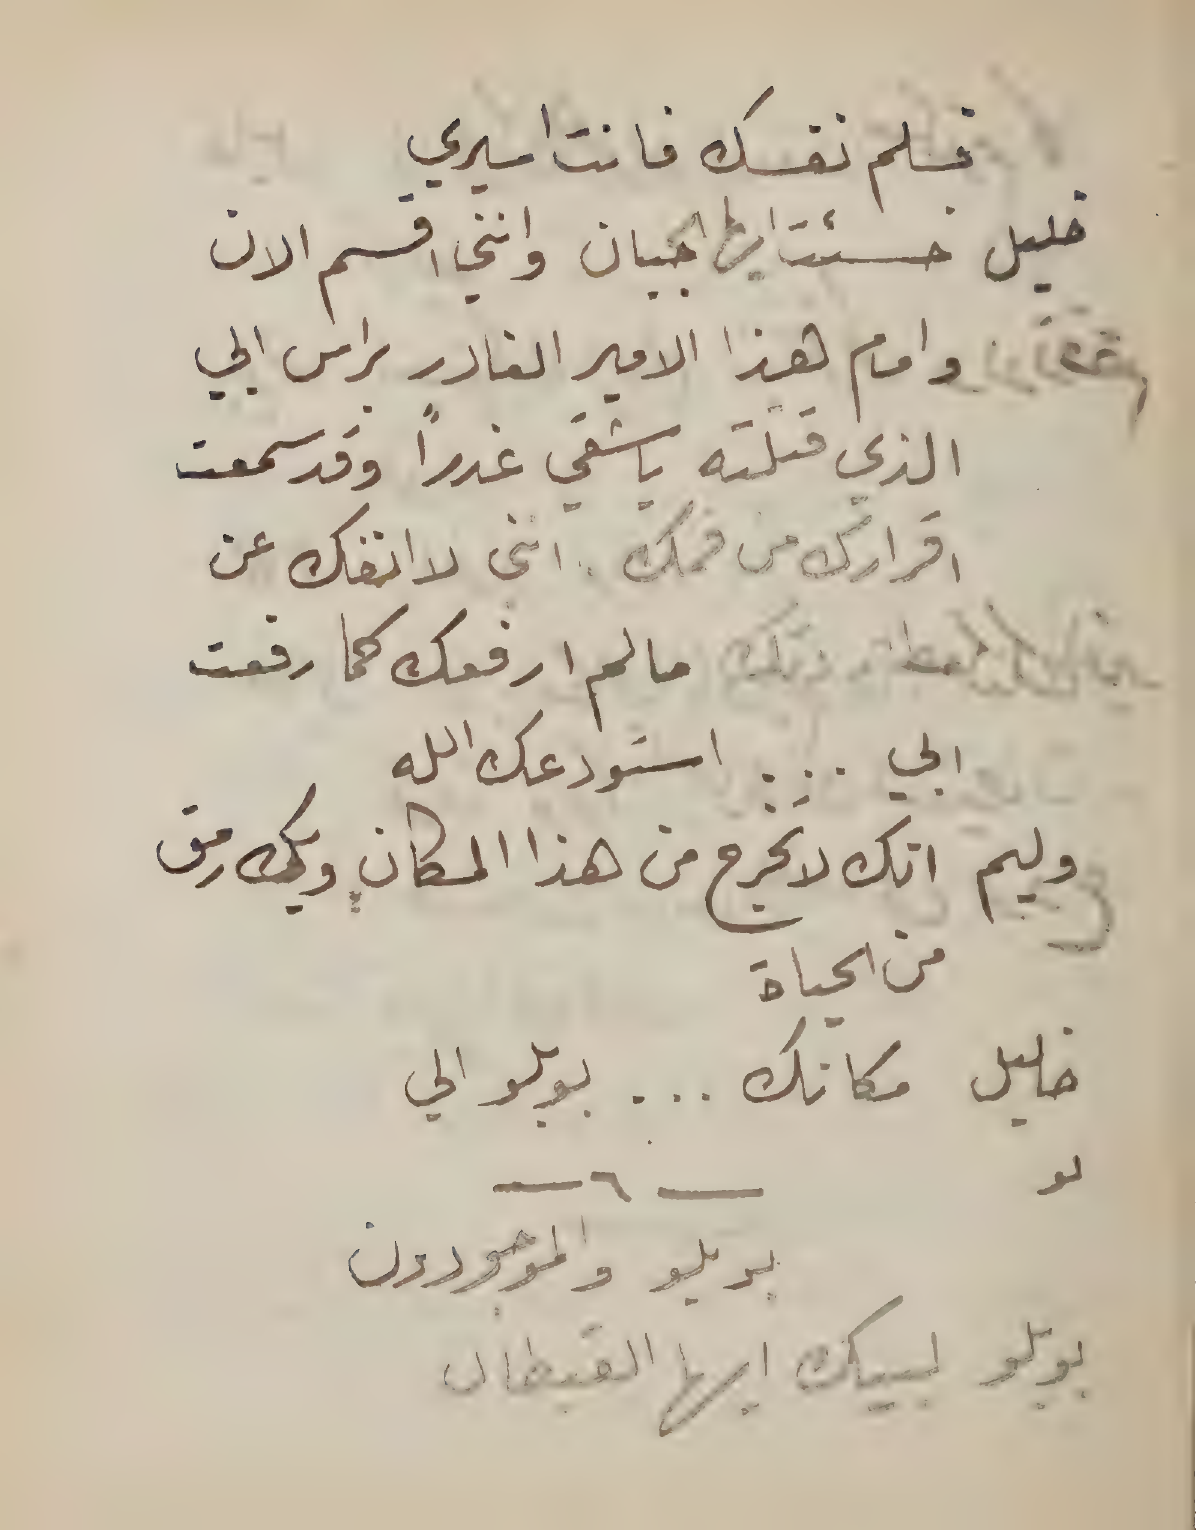 فسلم نفسك فانت اسيري
خليل خسئت ايها الجبان وانني اقسم الان
وامام هذا الامير الغادر براس ابي
الذي قتلته يا شقي غدراً وقد سمعت
اقرارك من فمك . انني لا انفك عن
مالم ارفعك كما رفعت
ابي .... استودعك الله
وليم انك لا تخرج من هذا المكان وبك رمق
من الحياة
خليل مكانك ... بوبلو الي
— ٦ —
بوبلو والموجودون
بوبلو لبيك ايها القبطان